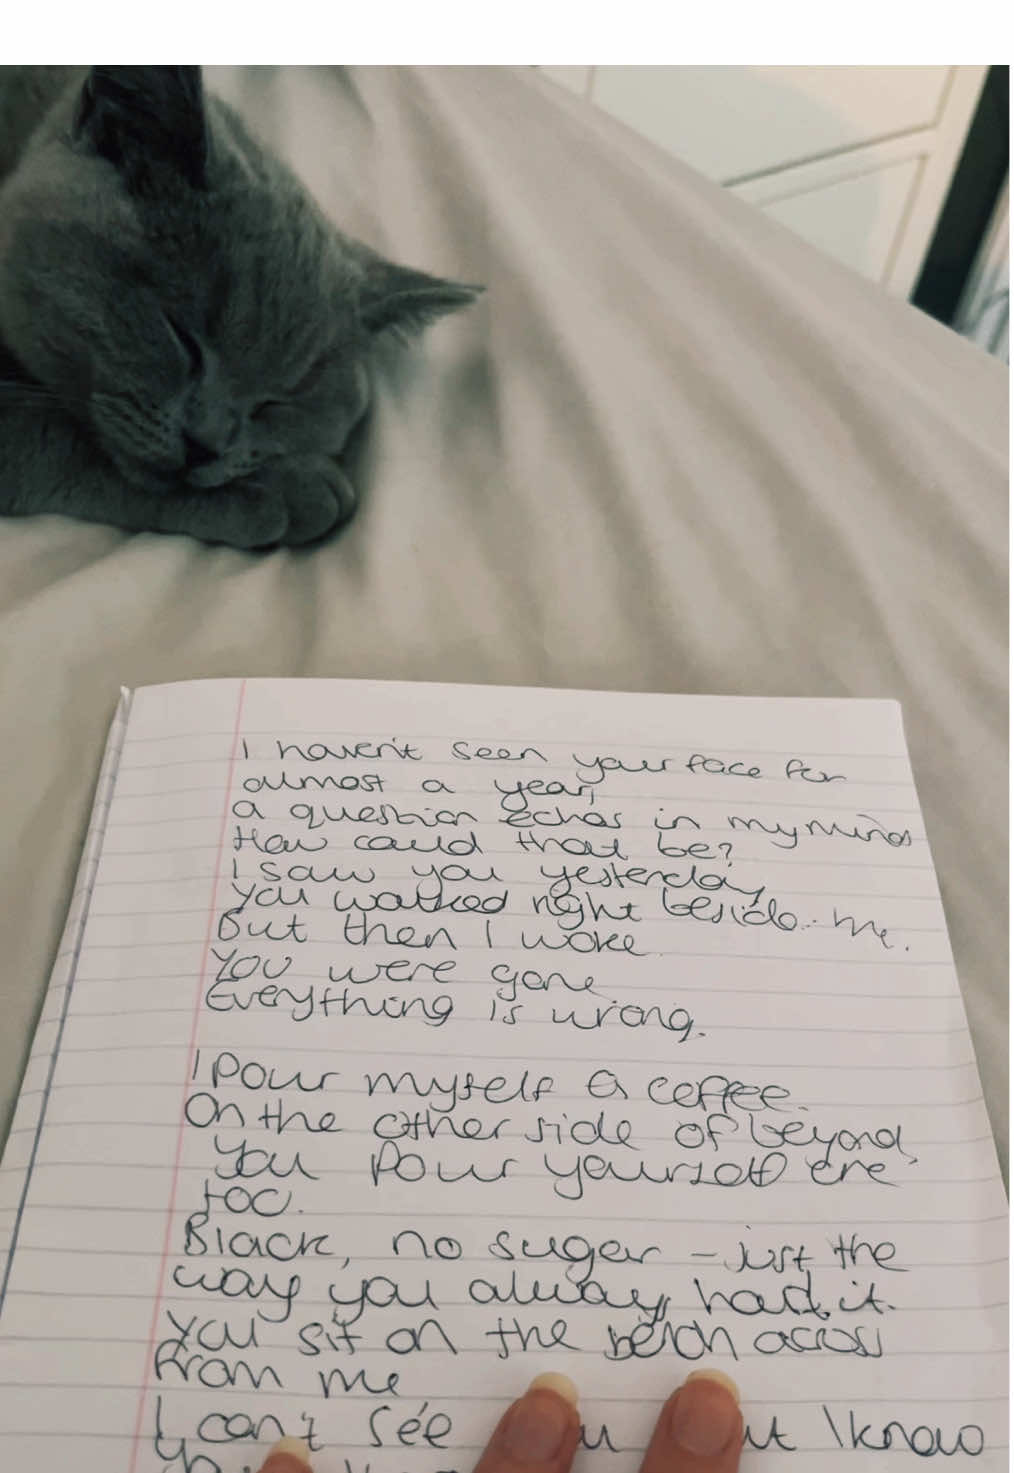 I haven't seen your face for
almost a year,
a question echos in my mind
How could that be?
I saw you yesterday,
you walked right beside me.
But then I woke
You were gone
Everything is wrong.
I pour myself a coffee.
On the other side of beyond,
You pour yourself one
too.
Black, no sugar - just the
way you always had it.
You sit on the bench across
from me
I can't see I know